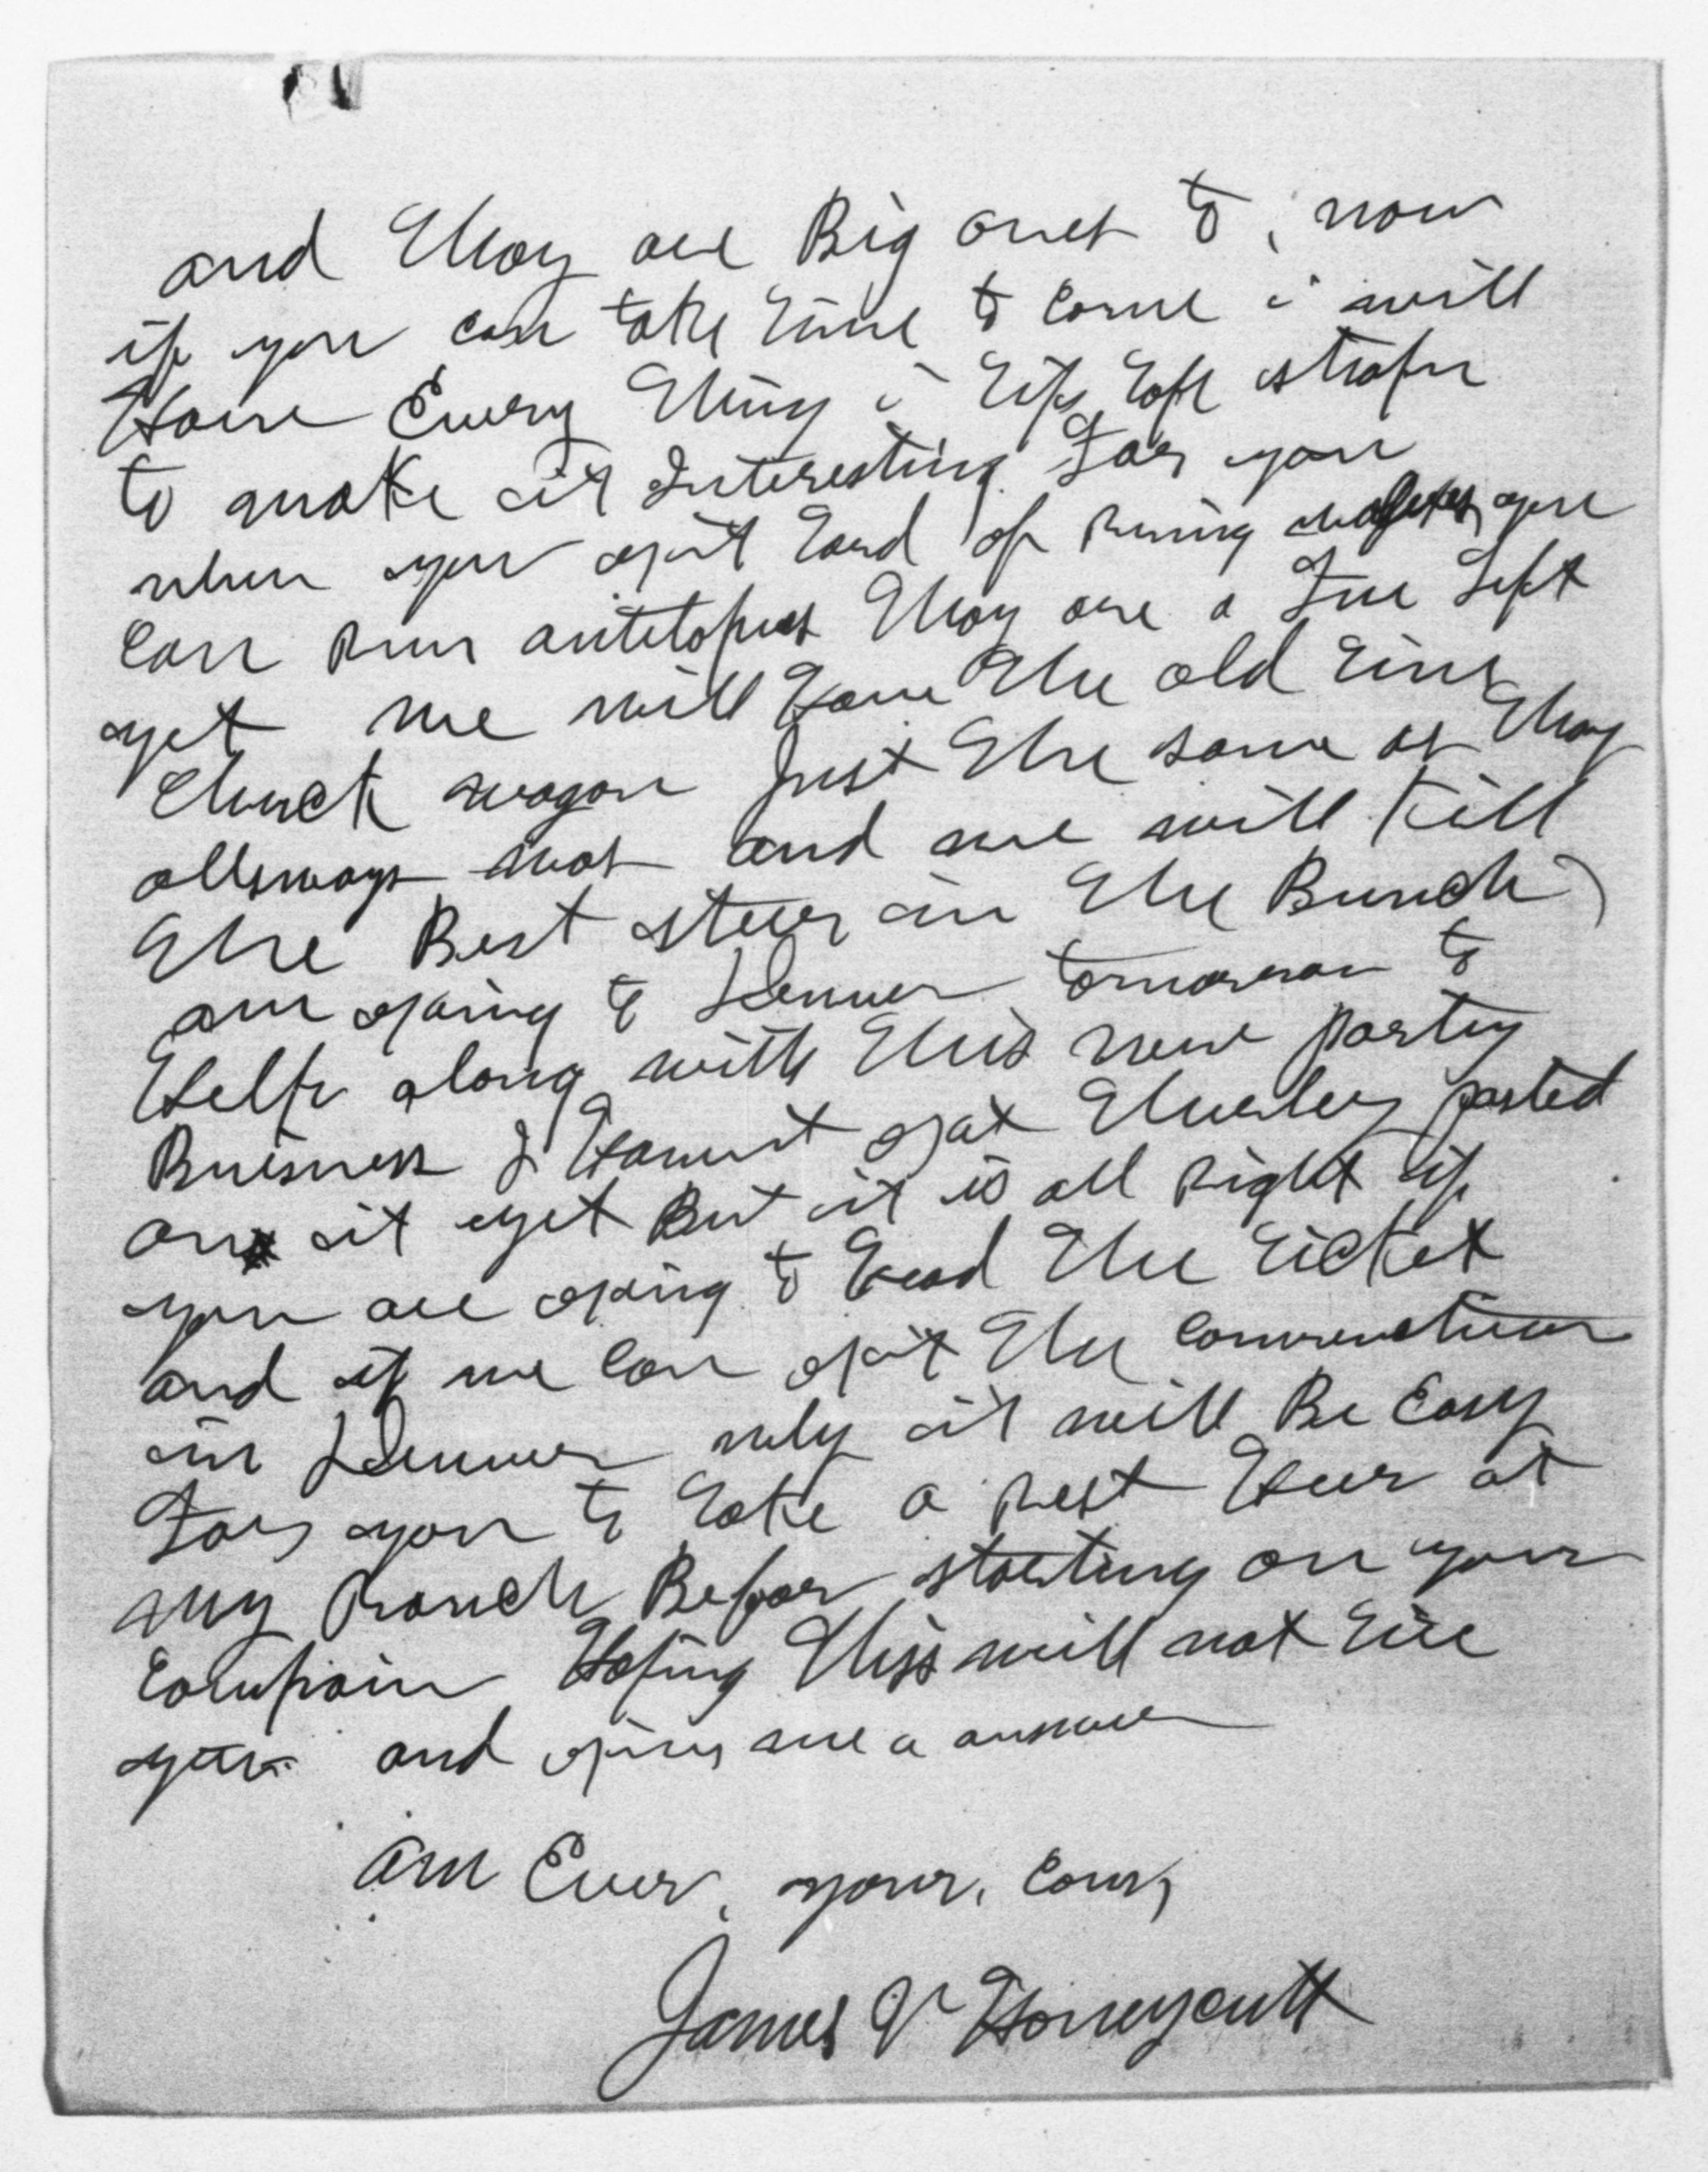 and thay are Big ones to, now
if you can take time to come i will
Have Every thing in tip top shape
to make it Interesting For you
when you git tard of runing wolfes you
can run antelopes thay are a Few Left
yet we will have the old time
chuck wagon just the same as thay
allways was and we will kill
the Best steer in the Bunch
am going to Denver tomorrow to
Help along with this new party
Buisness I Havent got thurley posted
on it yet But it is all right if
you are going to head the ticket
and if we can git the convention
in Denver why it will Be Easy
For you to take a rest Heer at
my Ranch Befoar starting on your
Compain Hoping this will not tire
you and giv me a answer
am Ever, your,
James V Honeycutt